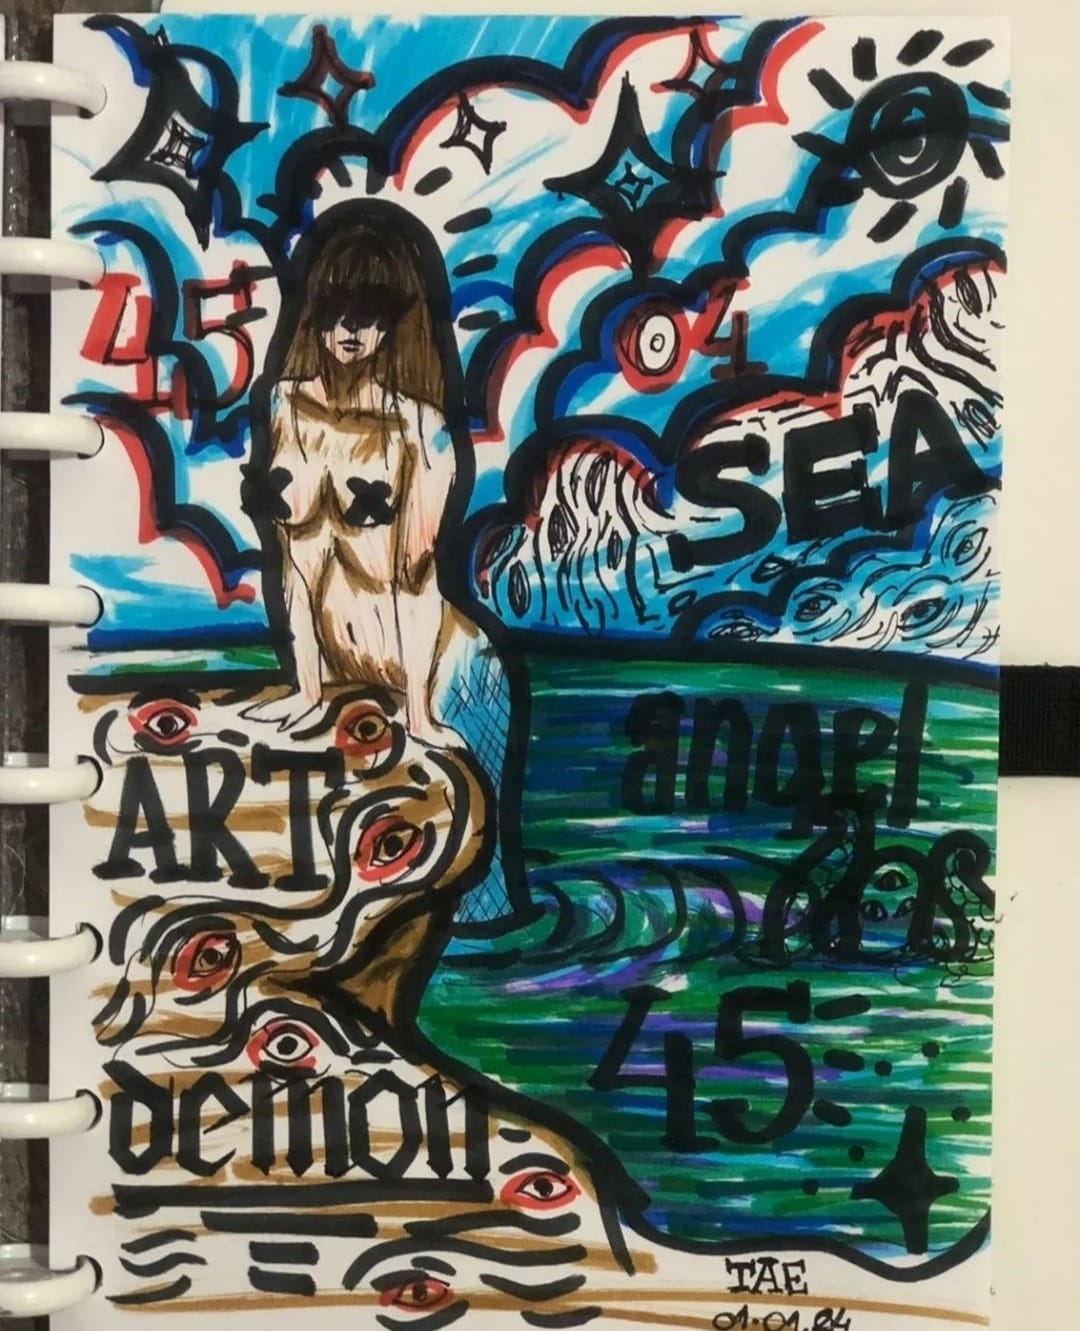 45
04
SEA
ART
angel
45
demon
TAE
01.01.24